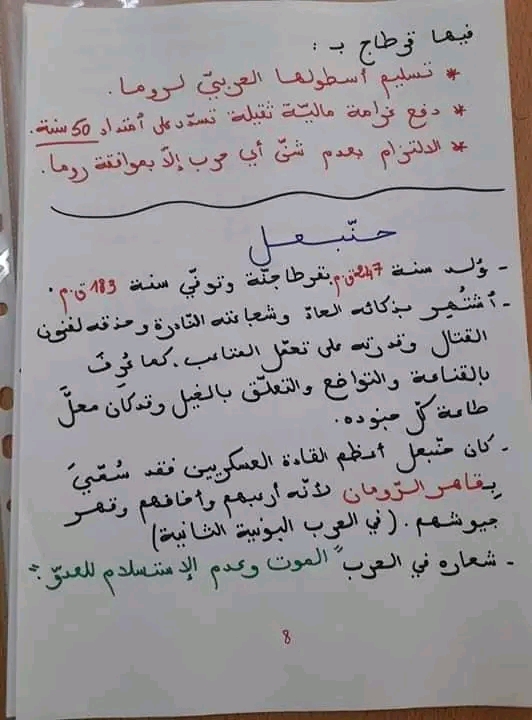 فيها قرطاج بـ :
* تسليم أسطولها الحربيّ لروما.
* دفع غرامة ماليّة ثقيلة تسدّد على امتداد 50 سنة.
* الالتزام بعدم شنّ أي حرب إلّا بموافقة روما.
حنّبعل
- وُلد سنة 247 ق.م بقرطاجنّة وتوفّي سنة 183 ق.م.
- اُشتُهِر بذكائه الحادّ وشجاعته النّادرة وحذقه لفنون
القتال وقدرته على تحمّل المتاعب. كما عُرِفَ
بالقناعة والتواضع والتعلّق بالخيل وقد كان محلَّ
طاعة كلّ جنوده.
- كان حنّبعل أعظم القادة العسكريين فقد سُمّيَ
بِقاهر الرّومان لأنّه أرهبهم وأخافهم وقهر
جيوشهم. (في الحرب البونية الثانية)
- شعاره في الحرب "الموت وعدم الإستسلام للعدوّ".
8